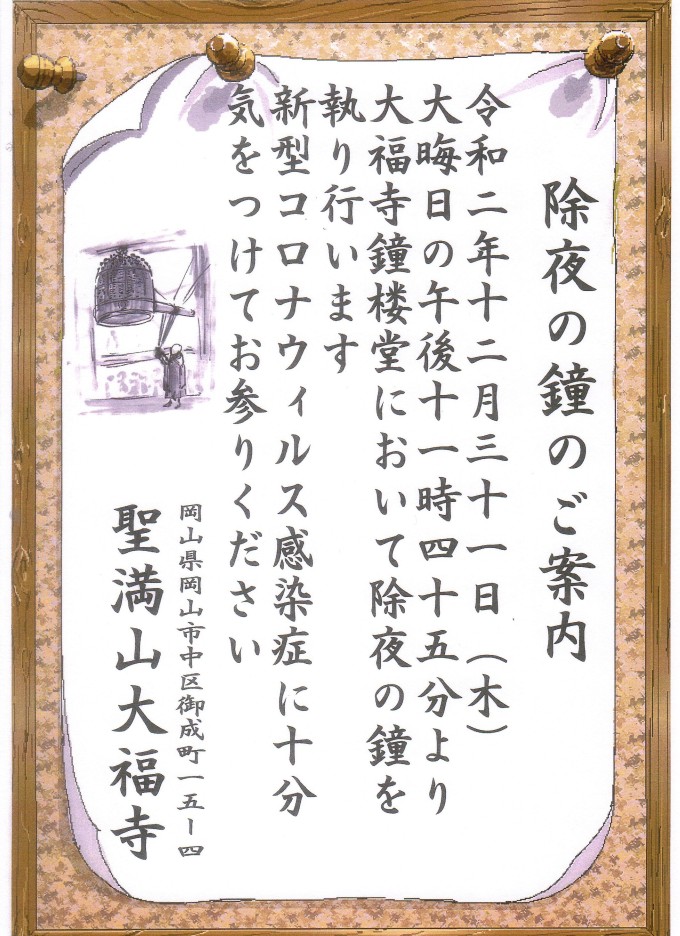 除夜の鐘のご案内
令和二年十二月三十一日（木）
大晦日の午後十一時四十五分より
大福寺鐘楼堂において除夜の鐘を
執り行います
新型コロナウィルス感染症に十分
気をつけてお参りください
岡山県岡山市中区御成町一五ー四
聖満山大福寺